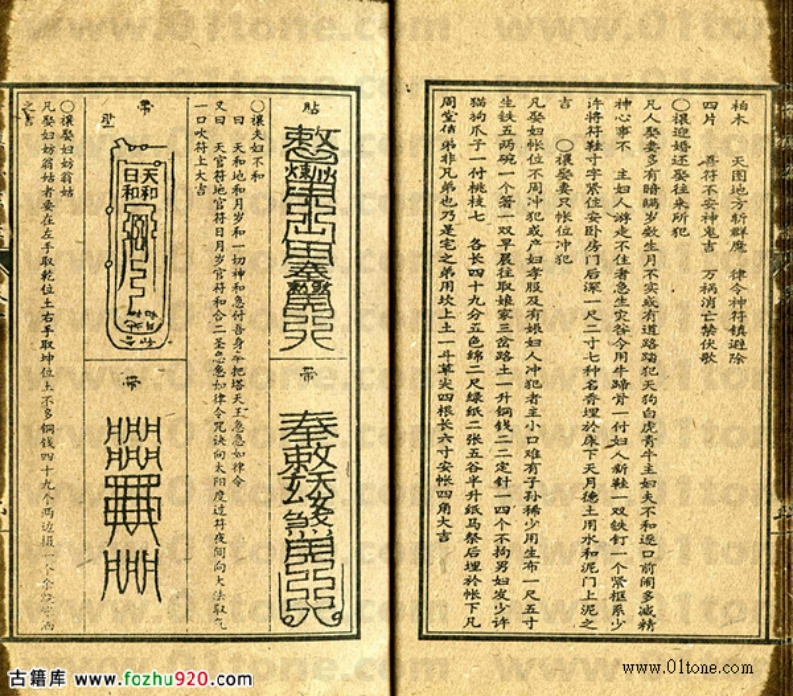 柏木　天圆地方斩群魔　律令神符镇避除
四片　善符不安神鬼吉　万祸消亡禁伏歌
〇禳迎婚还娶往来所犯
凡人娶妻多有暗瞒岁数生月不实或有道路踏犯天狗白虎青牛主妇夫不和逐口前闹多减精
神心事不　主妇人游走不住者急生灾咎今用牛蹄骨一付妇人新鞋一双铁钉一个紧框系少
许将符鞋寸字紧住安卧房门后深一尺二寸七种名香埋於床下天月德土用水和泥门上泥之
吉　〇禳娶妻只帐位冲犯
凡娶妇帐位不周冲犯或产妇孝服及有娠妇人冲犯者主小口难有子孙稀少用生布一尺五寸
生铁五两碗一个箸一双早晨往取娘家三岔路土一升铜钱二二定针一四个不拘男妇发少许
猫狗爪子一付桃枝七　各长四十九分五色绵二尺绿纸二张五谷半升纸马祭后埋於帐下凡
周堂值弟非凡弟也乃是宅之弟用坎上土一斗草尖四根长六寸安帐四角大吉
贴
带
〇禳夫妇不和
曰　天和地和月岁和一切神和急付吾身年把塔天王急急如律令
又曰　天官符地官符日月岁官符和合二圣急急如律令咒诀向太阳度过符夜间向大法取气
一口吹符上大吉
带
天和
日和
带
〇禳娶妇妨翁姑
凡娶妇妨翁姑者要在左手取乾位土右手取坤位土不多铜钱四十九个两边撮一个余
之吉
古籍库 www.fozhu920.com
www.01tone.com